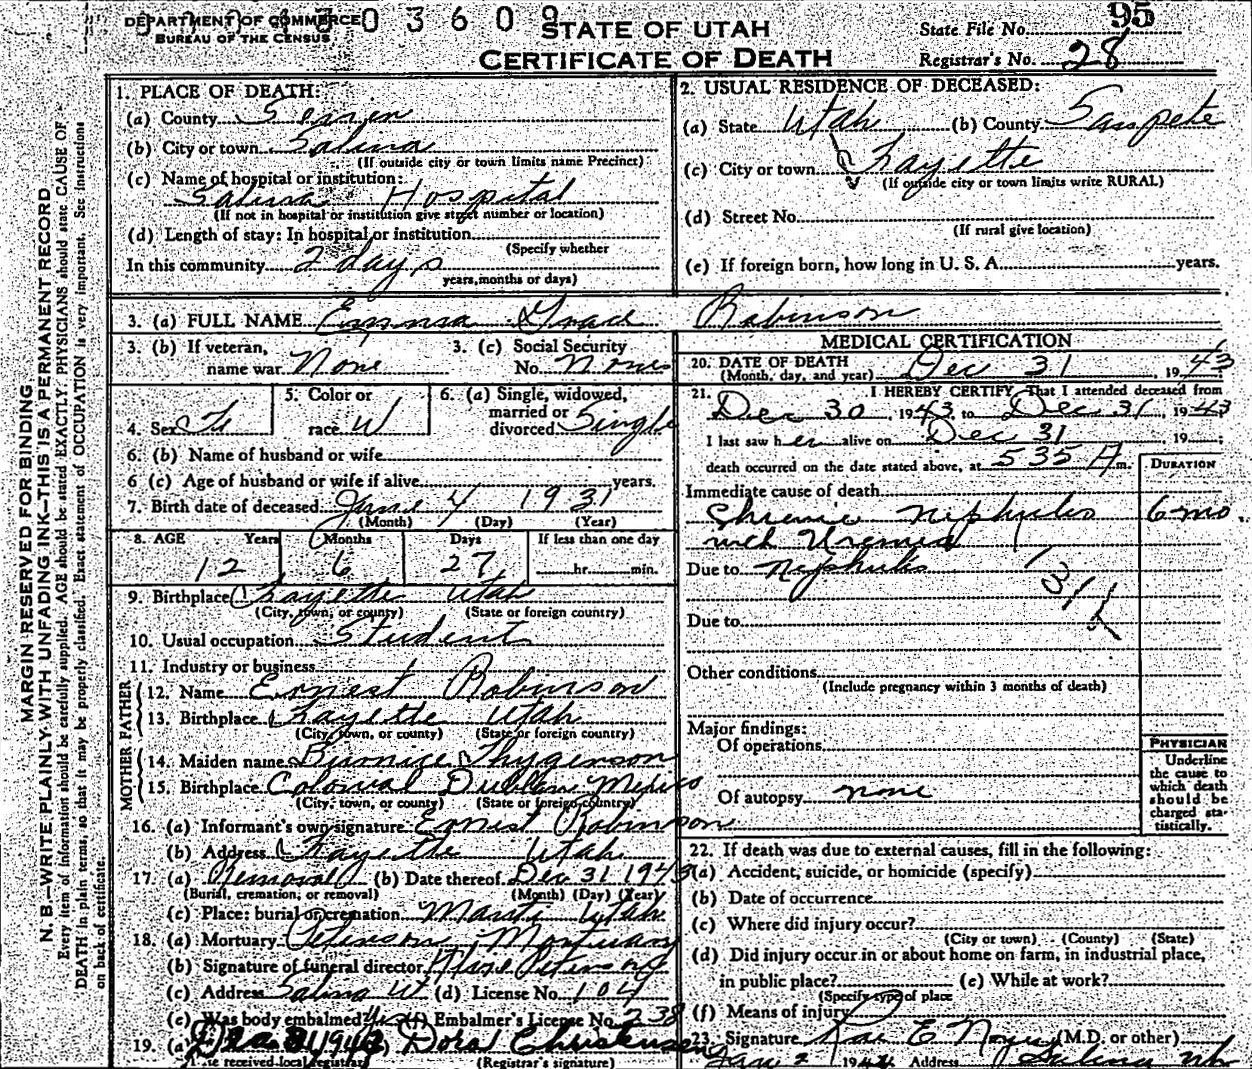 DEPARTMENT OF COMMERCE
BUREAU OF THE CENSUS
3 0 3 6 0 9
STATE OF UTAH
CERTIFICATE OF DEATH
State File No. 95
Registrar's No. 28
MARGIN RESERVED FOR BINDING
N. B.—WRITE PLAINLY WITH UNFADING INK—THIS IS A PERMANENT RECORD
Every item of information should be carefully supplied. AGE should be stated EXACTLY. PHYSICIANS should state CAUSE OF
DEATH in plain terms, so that it may be properly classified. Exact statement of OCCUPATION is very important. See instructions
on back of certificate.
1. PLACE OF DEATH:
(a) County Sevier
(b) City or town Salina
(If outside city or town limits name Precinct)
(c) Name of hospital or institution:
Salina Hospital
(If not in hospital or institution give street number or location)
(d) Length of stay: In hospital or institution
(Specify whether
In this community 2 days
years, months or days)
2. USUAL RESIDENCE OF DECEASED:
(a) State Utah (b) County Sanpete
(c) City or town Fayette
(If outside city or town limits write RURAL)
(d) Street No.
(If rural give location)
(e) If foreign born, how long in U. S. A. years.
3. (a) FULL NAME Emma Grace Robinson
3. (b) If veteran, name war None
3. (c) Social Security No. None
4. Sex F
5. Color or race W
6. (a) Single, widowed, married or divorced Single
6. (b) Name of husband or wife
6 (c) Age of husband or wife if alive years.
7. Birth date of deceased June 4 1931
(Month) (Day) (Year)
8. AGE Years Months Days If less than one day
12 6 27 hr. min.
9. Birthplace Fayette Utah
(City, town, or county) (State or foreign country)
10. Usual occupation Student
11. Industry or business
FATHER
12. Name Ernest Robinson
13. Birthplace Fayette Utah
(City, town, or county) (State or foreign country)
MOTHER
14. Maiden name Thygerson
15. Birthplace Colonial Dublan Mexico
(City, town, or county) (State or foreign country)
16. (a) Informant's own signature Ernest Robinson
(b) Address Fayette Utah
17. (a) Removal (b) Date thereof Dec 31 1943
(Burial, cremation, or removal) (Month) (Day) (Year)
(c) Place: burial or cremation Manti Utah
18. (a) Mortuary Peterson Mortuary
(b) Signature of funeral director Peterson
(c) Address Salina Ut (d) License No. 104
(e) Was body embalmed? Yes (f) Embalmer's License No. 238
19. (a) Dec 31 1943 (b) Dora Christensen
(Date received local registrar) (Registrar's signature)
MEDICAL CERTIFICATION
20. DATE OF DEATH Dec 31, 1943
(Month, day, and year)
21. I HEREBY CERTIFY, That I attended deceased from
Dec 30, 1943, to Dec 31, 1943
I last saw her alive on Dec 31, 19 ;
death occurred on the date stated above, at 535 A m.
DURATION
Immediate cause of death
Chronic Nephritis 6 mo.
with Uremia
Due to Nephritis
Due to
Other conditions
(Include pregnancy within 3 months of death)
Major findings:
Of operations
Of autopsy none
PHYSICIAN
Underline
the cause to
which death
should be
charged sta-
tistically.
22. If death was due to external causes, fill in the following:
(a) Accident, suicide, or homicide (specify)
(b) Date of occurrence
(c) Where did injury occur?
(City or town) (County) (State)
(d) Did injury occur in or about home on farm, in industrial place,
in public place? (e) While at work?
(Specify type of place
(f) Means of injury
23. Signature Rae E Noyes (M.D. or other)
Jan 2 1944 Address Salina Ut